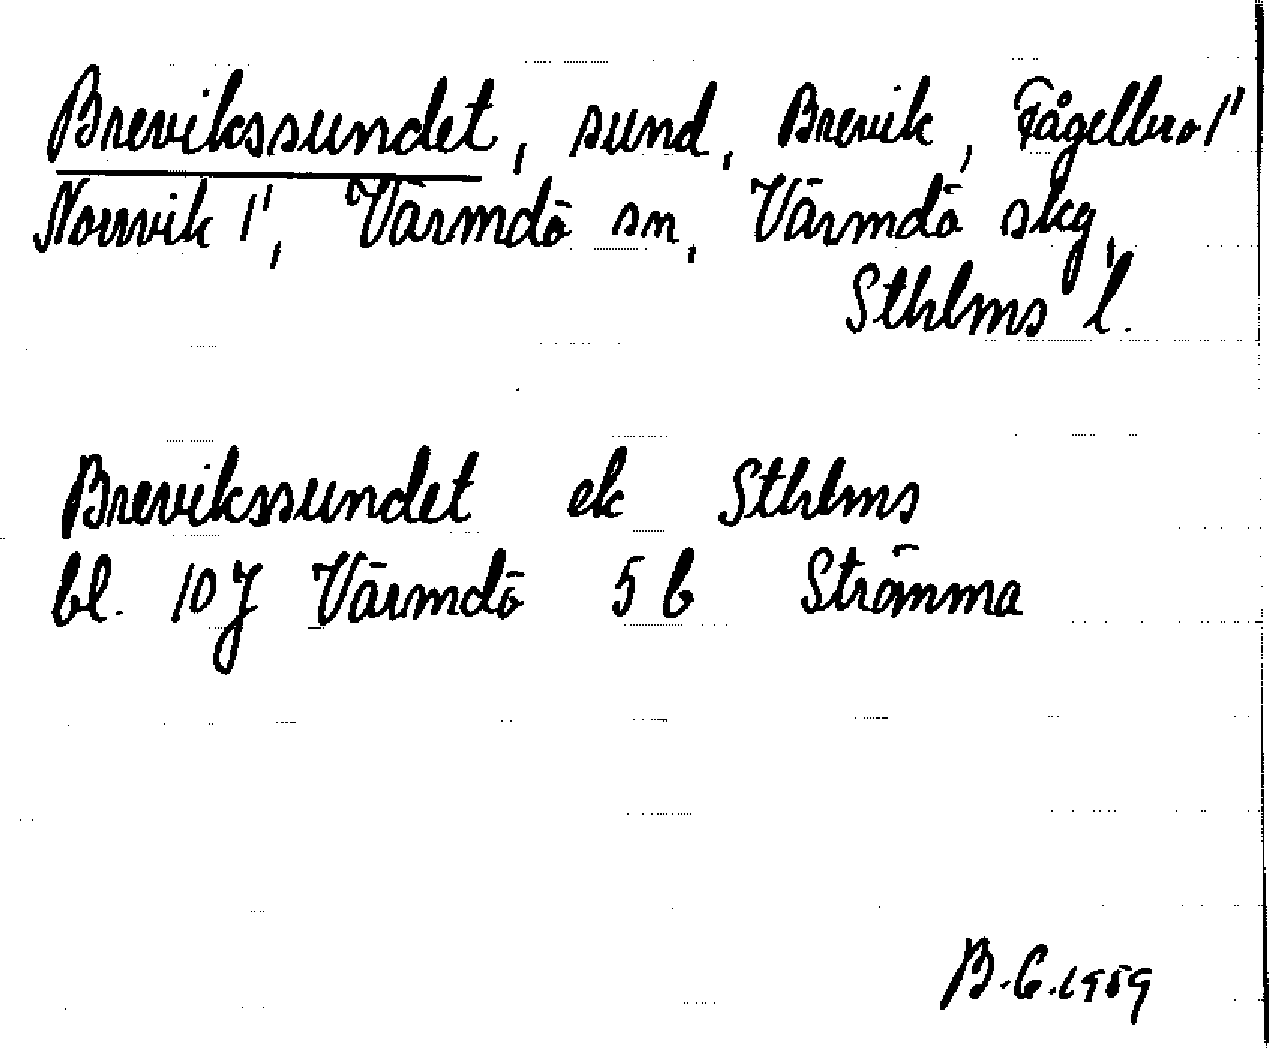 Brevikssundet, sund, Brevik, Fågelbro 1¹
Norrvik 1¹, Värmdö sn, Värmdö skg,
Sthlms l.
Brevikssundet ek Sthlms
bl. 10 J Värmdö 5 b Strömma
B.G. 1959